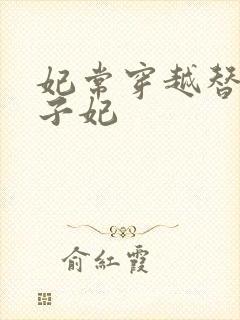 妃常穿越替
子妃
俞紅霞